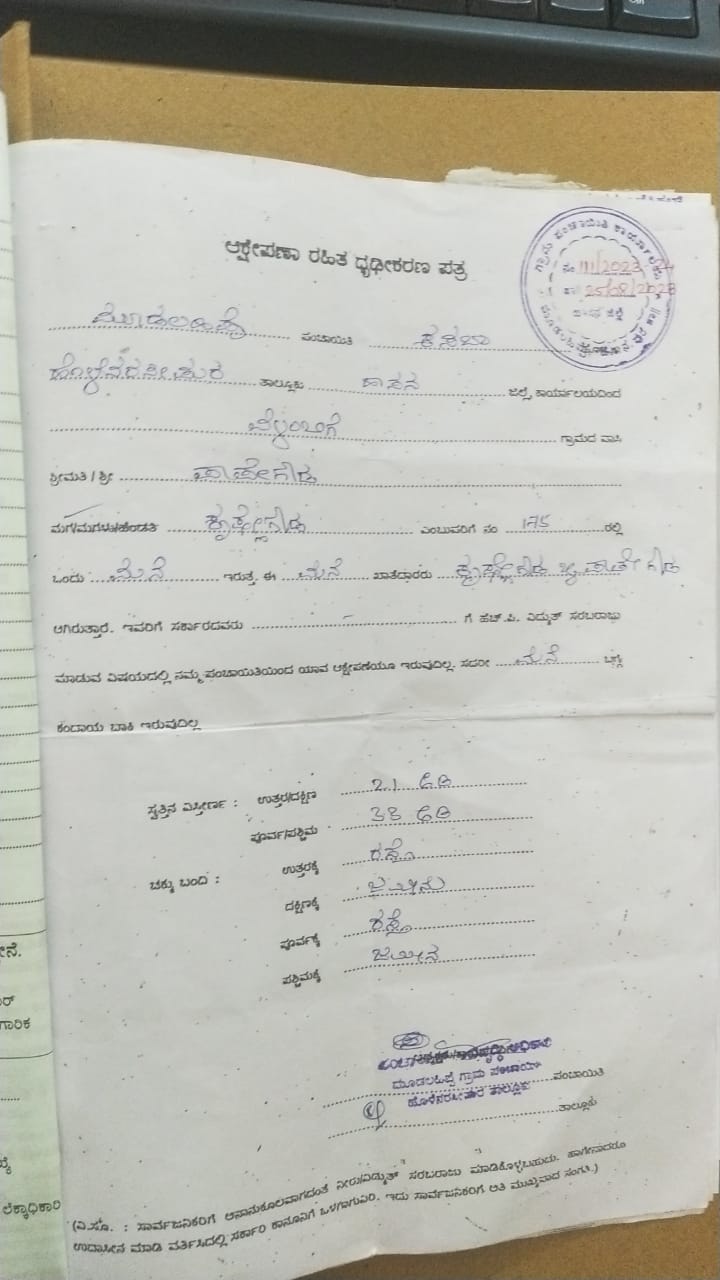 ಆಕ್ಷೇಪಣಾ ರಹಿತ ಧೃಢೀಕರಣ ಪತ್ರ
ಗ್ರಾಮ ಪಂಚಾಯಿತಿ ಕಾರ್ಯಾಲಯ
ನಂ 111/2023-24
25/08/2023
ಮೂಡಲಹಿಪ್ಪೆ ಪಂಚಾಯಿತಿ ಕಸಬಾ
ಹೊಳೆನರಸೀಪುರ ತಾಲ್ಲೂಕು ಹಾಸನ ಜಿಲ್ಲೆ, ಕಾರ್ಯಾಲಯದಿಂದ
ಗ್ರಾಮದ ವಾಸಿ
ಶ್ರೀಮತಿ / ಶ್ರೀ ಪಾಪೇಗೌಡ
ಮಗ/ಮಗಳು/ಹೆಂಡತಿ ಎಂಬುವರಿಗೆ ನಂ 175 ರಲ್ಲಿ
ಒಂದು ಮನೆ ಇರುತ್ತೆ. ಈ ಮನೆ ಖಾತೆದಾರರು
ಆಗಿರುತ್ತಾರೆ. ಇವರಿಗೆ ಸರ್ಕಾರದವರು ಗೆ ಹೆಚ್.ಪಿ. ವಿದ್ಯುತ್ ಸರಬರಾಜು
ಮಾಡುವ ವಿಷಯದಲ್ಲಿ ನಮ್ಮ ಪಂಚಾಯಿತಿಯಿಂದ ಯಾವ ಆಕ್ಷೇಪಣೆಯೂ ಇರುವುದಿಲ್ಲ. ಸದರೀ ಮನೆ ಬಗ್ಗೆ
ಕಂದಾಯ ಬಾಕಿ ಇರುವುದಿಲ್ಲ
ಸ್ವತ್ತಿನ ವಿಸ್ತೀರ್ಣ : ಉತ್ತರ/ದಕ್ಷಿಣ 21 ಅಡಿ
ಪೂರ್ವ/ಪಶ್ಚಿಮ 38 ಅಡಿ
ಚಕ್ಕು ಬಂದಿ : ಉತ್ತರಕ್ಕೆ ರಸ್ತೆ
ದಕ್ಷಿಣಕ್ಕೆ ಜಮೀನು
ಪೂರ್ವಕ್ಕೆ ರಸ್ತೆ
ಪಶ್ಚಿಮಕ್ಕೆ ಜಮೀನ
ಮೂಡಲಹಿಪ್ಪೆ ಗ್ರಾಮ ಪಂಚಾಯಿತಿ
ಪಂಚಾಯಿತಿ
ಹೊಳೆನರಸೀಪುರ ತಾಲ್ಲೂಕು
ತಾಲ್ಲೂಕು
(ವಿ.ಸೂ. : ಸಾರ್ವಜನಿಕರಿಗೆ ಅನಾನುಕೂಲವಾಗದಂತೆ ನೀರು/ವಿದ್ಯುತ್ ಸರಬರಾಜು ಮಾಡಿಕೊಳ್ಳಬಹುದು. ಹಾಗೇನಾದರೂ
ಉದಾಸೀನ ಮಾಡಿ ವರ್ತಿಸಿದಲ್ಲಿ ಸರ್ಕಾರಿ ಕಾನೂನಿಗೆ ಒಳಗಾಗುವಿರಿ. ಇದು ಸಾರ್ವಜನಿಕರಿಗೆ ಅತಿ ಮುಖ್ಯವಾದ ಸಂಗತಿ.)